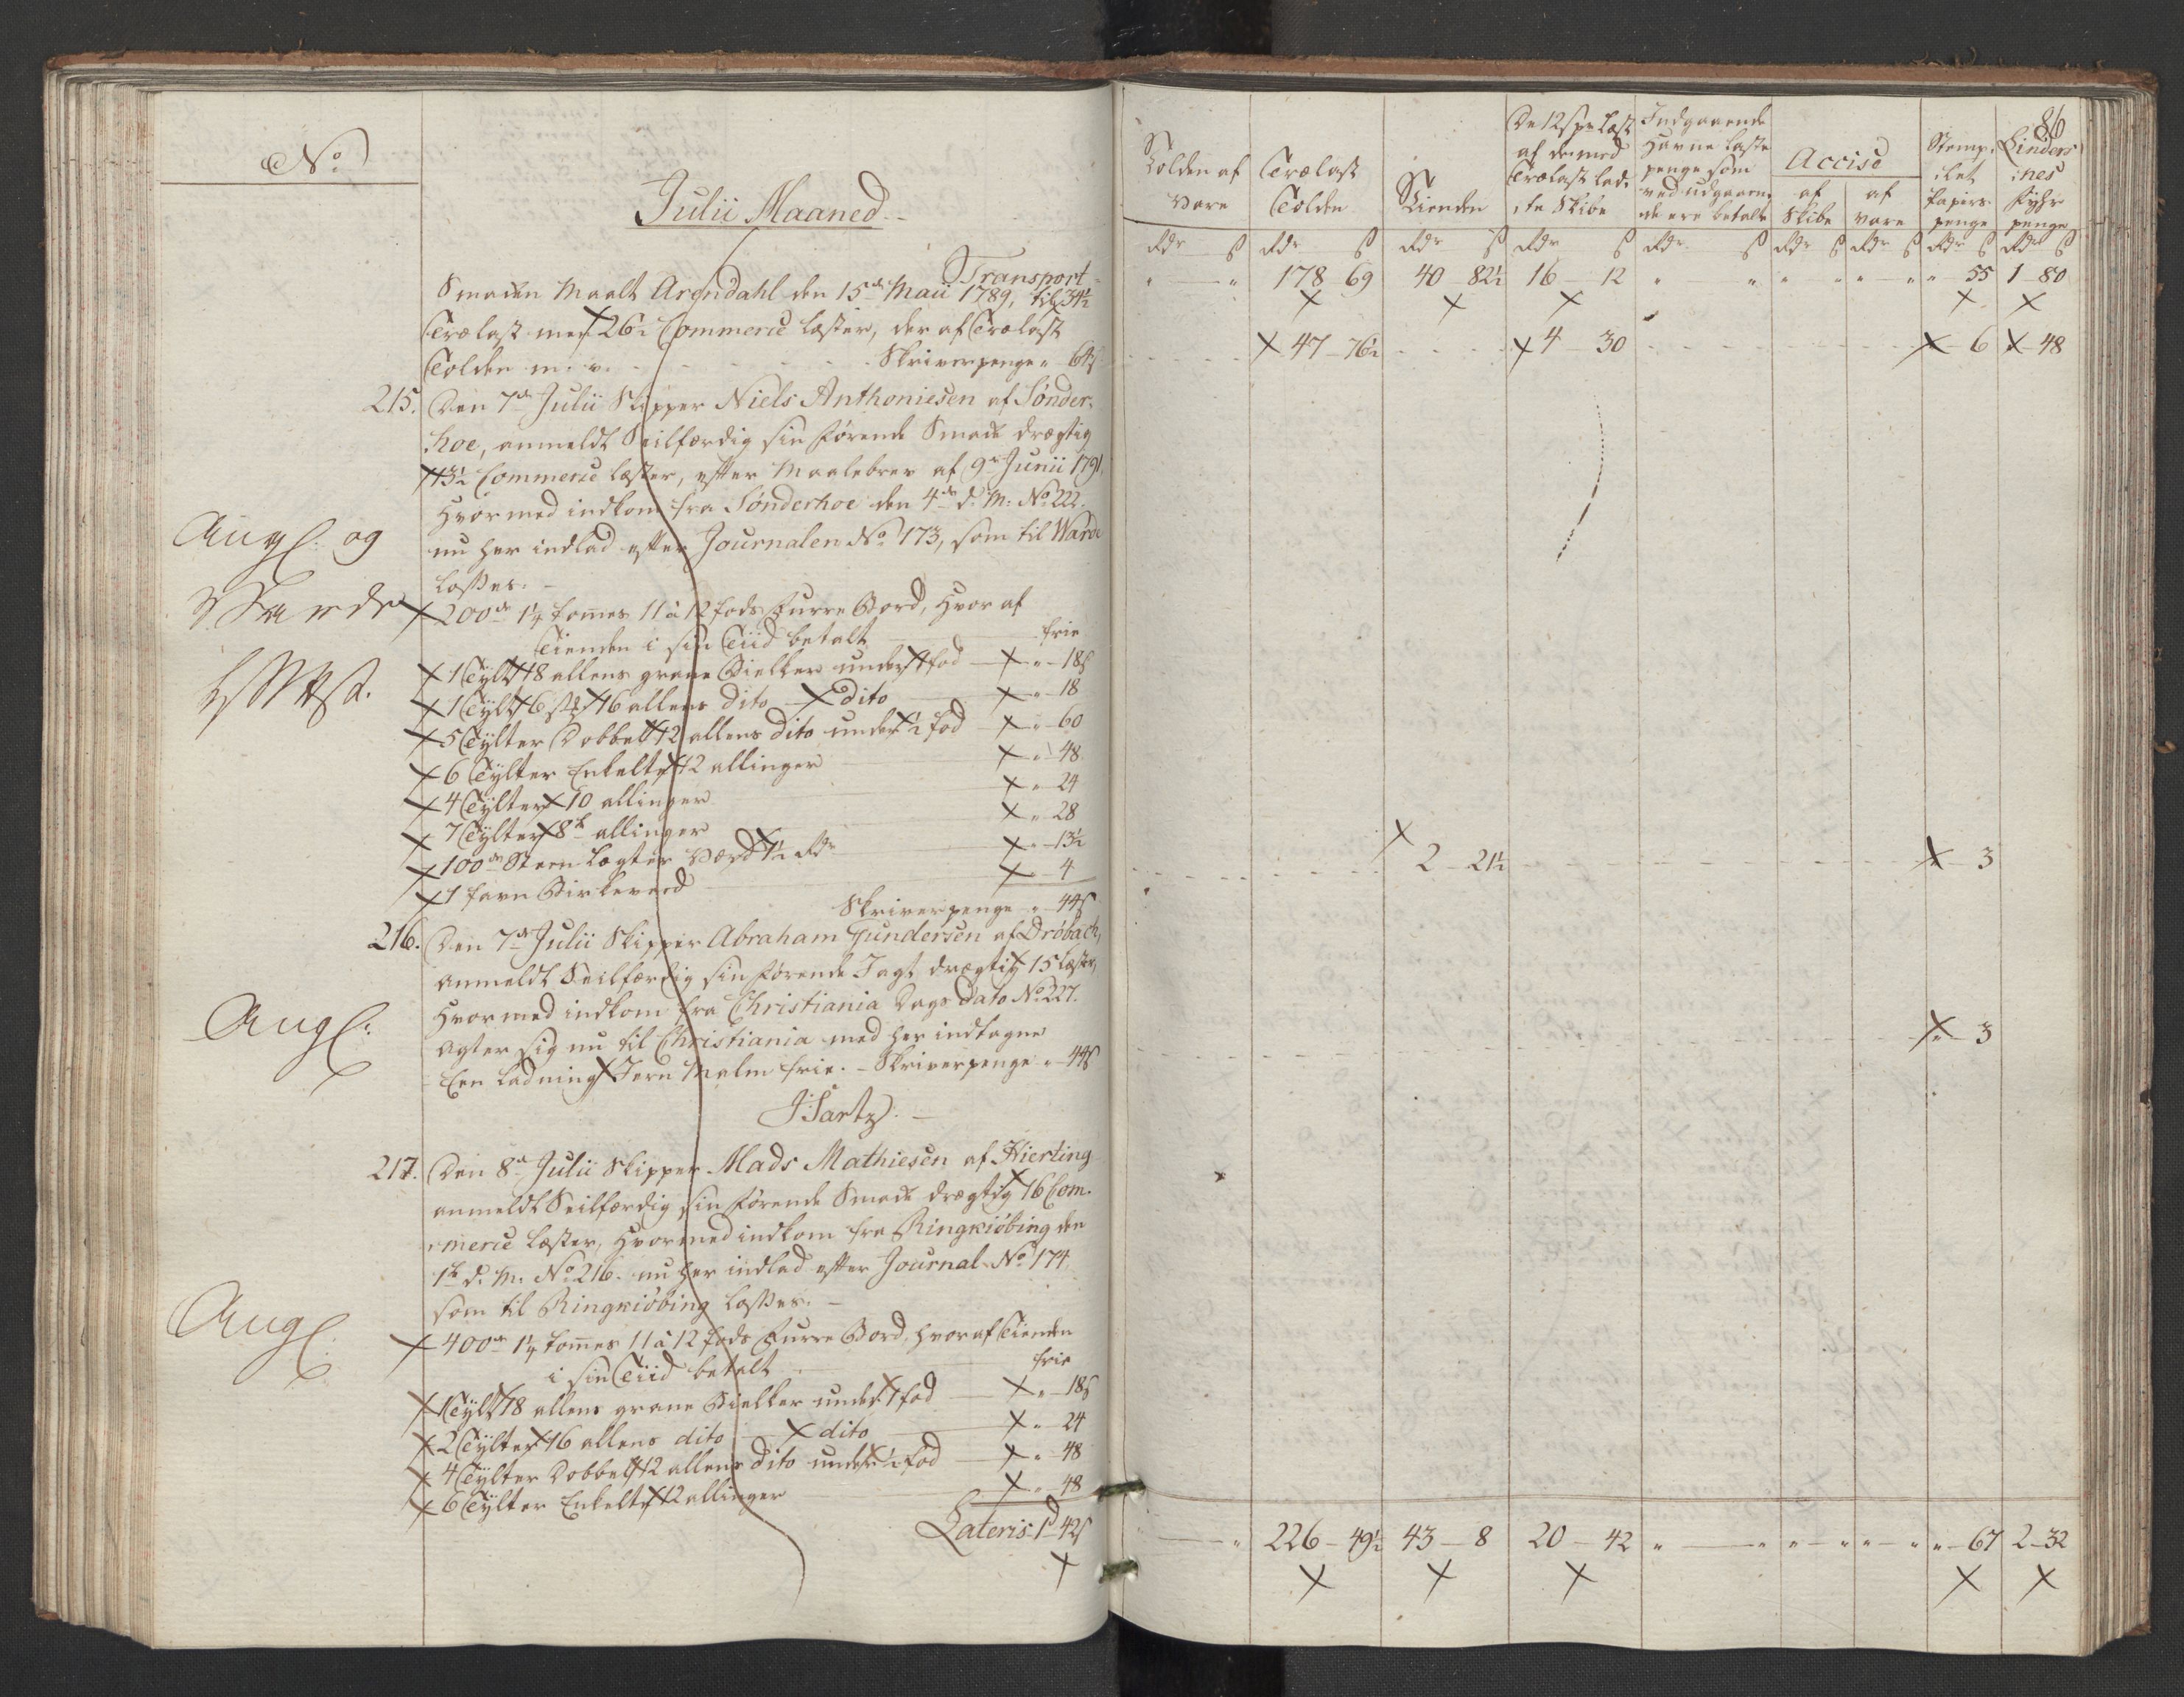 No
Julii Maaned.
Transport
Smaken Maalt Arendahl den 15de Maii 1789, til 34½
Trælast med 26½ Commerce læster, der af Trælast
Tolden m. v. Skriverpenge " 64 s
215. Den 7de Julii Skipper Niels Anthoniesen af Sønder-
hoe, anmeldt Seilfærdig sin førende Smak drægtig
13½ Commerce læster, efter Maalebrev af 9de Junii 1791,
hvormed indkom fra Sønderhoe den 4de d: M: No 222.
Angl: og
nu her indlad efter Journalen No 173, som til Warde
losses.
Warde
200de 1¼ tommes 11 à 12 fods Furre Bord, hvor af
Tienden i sin Tiid betalt frie
1 Tylt 18 allens grane Bielker under 1 fod " 18 s
1 Tylt 6 st: 16 allens dito dito " 18
5 Tylter Dobbelt 12 allens dito under ½ fod " 60
6 Tylter Enkelte 12 allinger " 48
4 Tylter 10 allinger " 24
7 Tylter 8te allinger " 28
100de Steen Lægter værd 1½ Rdr " 13½
1 favn Birkeveed " 4
Skriverpenge " 44 s
216. Den 7de Julii Skipper Abraham Gundersen af Drøbach,
anmeldt Seilfærdig sin førende Jagt drægtig 15 læster,
hvormed indkom fra Christiania Dags dato No 227.
Angl:
Agter sig nu til Christiania med her indtagne
Een ladning Jern Malm frie. - Skriverpenge " 44 s
J Sartz.
217. Den 8de Julii Skipper Mads Mathiesen af Hierting
anmeldt Seilfærdig sin førende Smak drægtig 16 Com-
merce læster, hvormed indkom fra Ringkiöbing den
1te d: M: No 216. nu her indlad efter Journal No 174
som til Ringkiöbing losses.
Angl:
400de 1¼ tommes 11 à 12 fods Furre Bord, hvor af Tienden
i sin Tiid betalt frie
1 Tylt 18 allens grane Bielker under 1 fod " 18 s
2 Tylter 16 allens dito dito " 24
4 Tylter Dobbelt 12 allens dito under ½ fod " 48
6 Tylter Enkelte 12 allinger " 48
Lateris 1 d 42 s
86
Tolden af Vare
Trælast Tolden
Tienden
De 12 s pr læst af de med Trælast lad- te Skibe
Indgaaende Havne laste penge som ved udgaaen- de ere betalte
Accise
af Skibe
af vare
Stemp- let papirs penge
Linders- nes Fyhr penge
Rdr s Rdr s Rdr s Rdr s Rdr s Rdr s Rdr s Rdr s Rdr s
" " 178 69 40 82½ 16 12 " " " " " " " 55 1 80
47 76½ 4 30 6 48
2 21½ 3
" 3
" 226 49½ 43 8 20 42 " " " " " " " 67 2 32